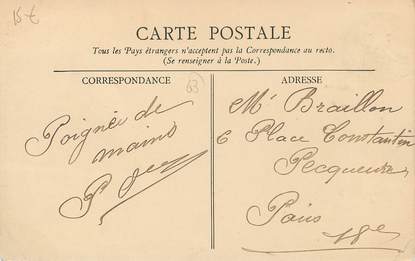 15 €
CARTE POSTALE
Tous les Pays étrangers n'acceptent pas la Correspondance au recto.
(Se renseigner à la Poste.)
CORRESPONDANCE
63
Poignée de
mains
ADRESSE
Mr Braillon
6 Place Constantin
Pecqueur
Paris
18e